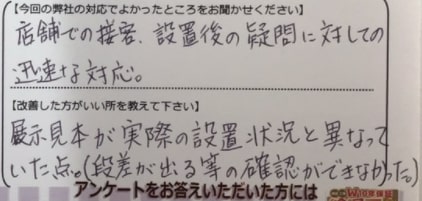 【今回の弊社の対応でよかったところをお聞かせください】
店舗での接客、設置後の疑問に対しての
迅速な対応。
【改善した方がいい所を教えて下さい】
展示見本が実際の設置状況と異なって
いた点。(段差が出る等の確認ができなかった。)
アンケートをお答えいただいた方には